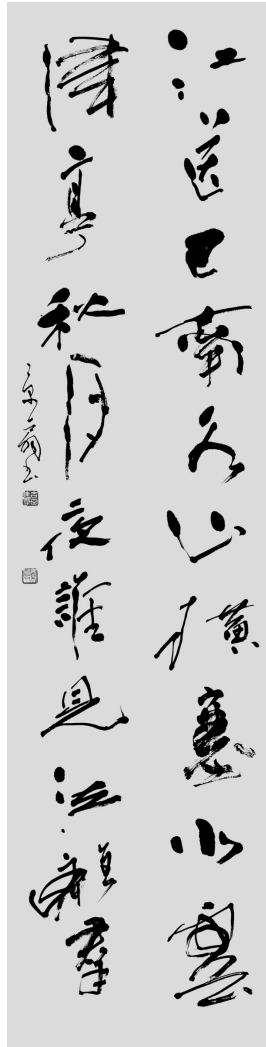 江送巴南水山橫塞北雲
津亭秋月夜誰見泣離羣